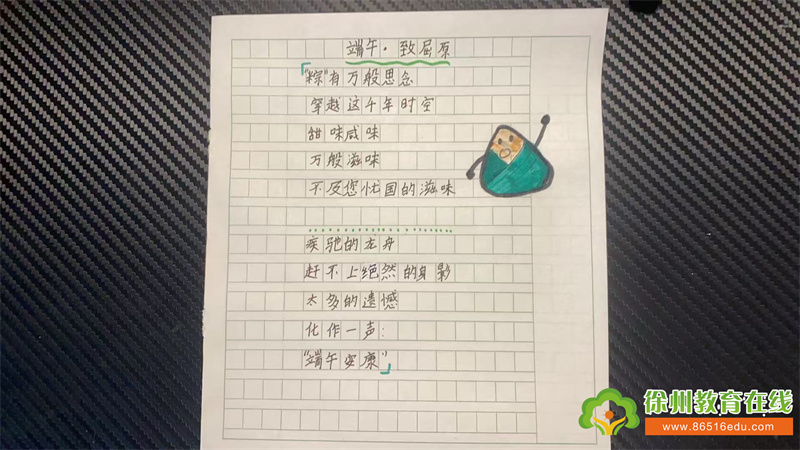 端午·致屈原
“粽”有万般思念
穿越这千年时空
甜味咸味
万般滋味
不及您忧国的滋味
疾驰的龙舟
赶不上绝然的身影
太多的遗憾
化作一声：
“端午安康”
徐州教育在线
www.86516edu.com